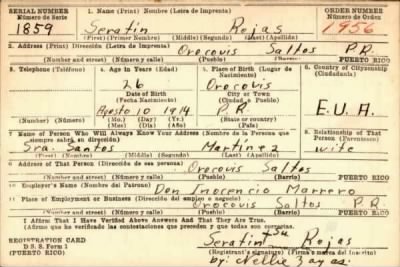 SERIAL NUMBER 1. Name (Print) Nombre (Letra de Imprenta) ORDER NUMBER
Número de Serie Número de Orden
1859 Serafin Rojas 1956
(First) (Primer Nombre) (Middle) (Segundo) (Last) (Apellido)
2. Address (Print) Dirección (Letra de Imprenta)
Orocovis Saltos P.R.
(Number and street) (Número y calle) (Pueblo) (Barrio) PUERTO RICO
3. Telephone (Teléfono) 4. Age in Years (Edad) 5. Place of Birth (Lugar de Nacimiento) 6. Country of Citizenship (Ciudadanía)
26 Orocovis
Date of Birth City or Town
(Fecha Nacimiento) (Ciudad o Pueblo)
Agosto 10 1914 P.R. E.U.A.
(Number) (Número) (Mo.) (Day) (Yr.) (State or country)
(Mes) (Día) (Año) (País)
7 Name of Person Who Will Always Know Your Address (Nombre de la Persona que siempre sabrá su dirección) 8. Relationship of That Person (Parentesco)
Sra. Santos Martinez wife
(First) (Primer Nombre) (Middle) (Segundo) (Last) (Apellido)
9 Address of That Person (Dirección de esa persona)
Orocovis Saltos
(Number and street) (Número y calle) (Pueblo) (Barrio) PUERTO RICO
10 Employer's Name (Nombre del Patrono)
Don Inocencio Marrero
11 Place of Employment or Business (Dirección del empleo o negocio)
Orocovis Saltos P.R.
(Number and street) (Número y calle) (Pueblo) (Barrio) PUERTO RICO
I Affirm That I Have Verified Above Answers and That They Are True.
(Afirmo que he verificado las contestaciones que preceden y que todas son correctas.)
REGISTRATION CARD
D. S. S. Form 1
(PUERTO RICO)
Serafin Rojas
(Registrant's signature) (Firma o marca del inscrito)
by: Nellie Zayas